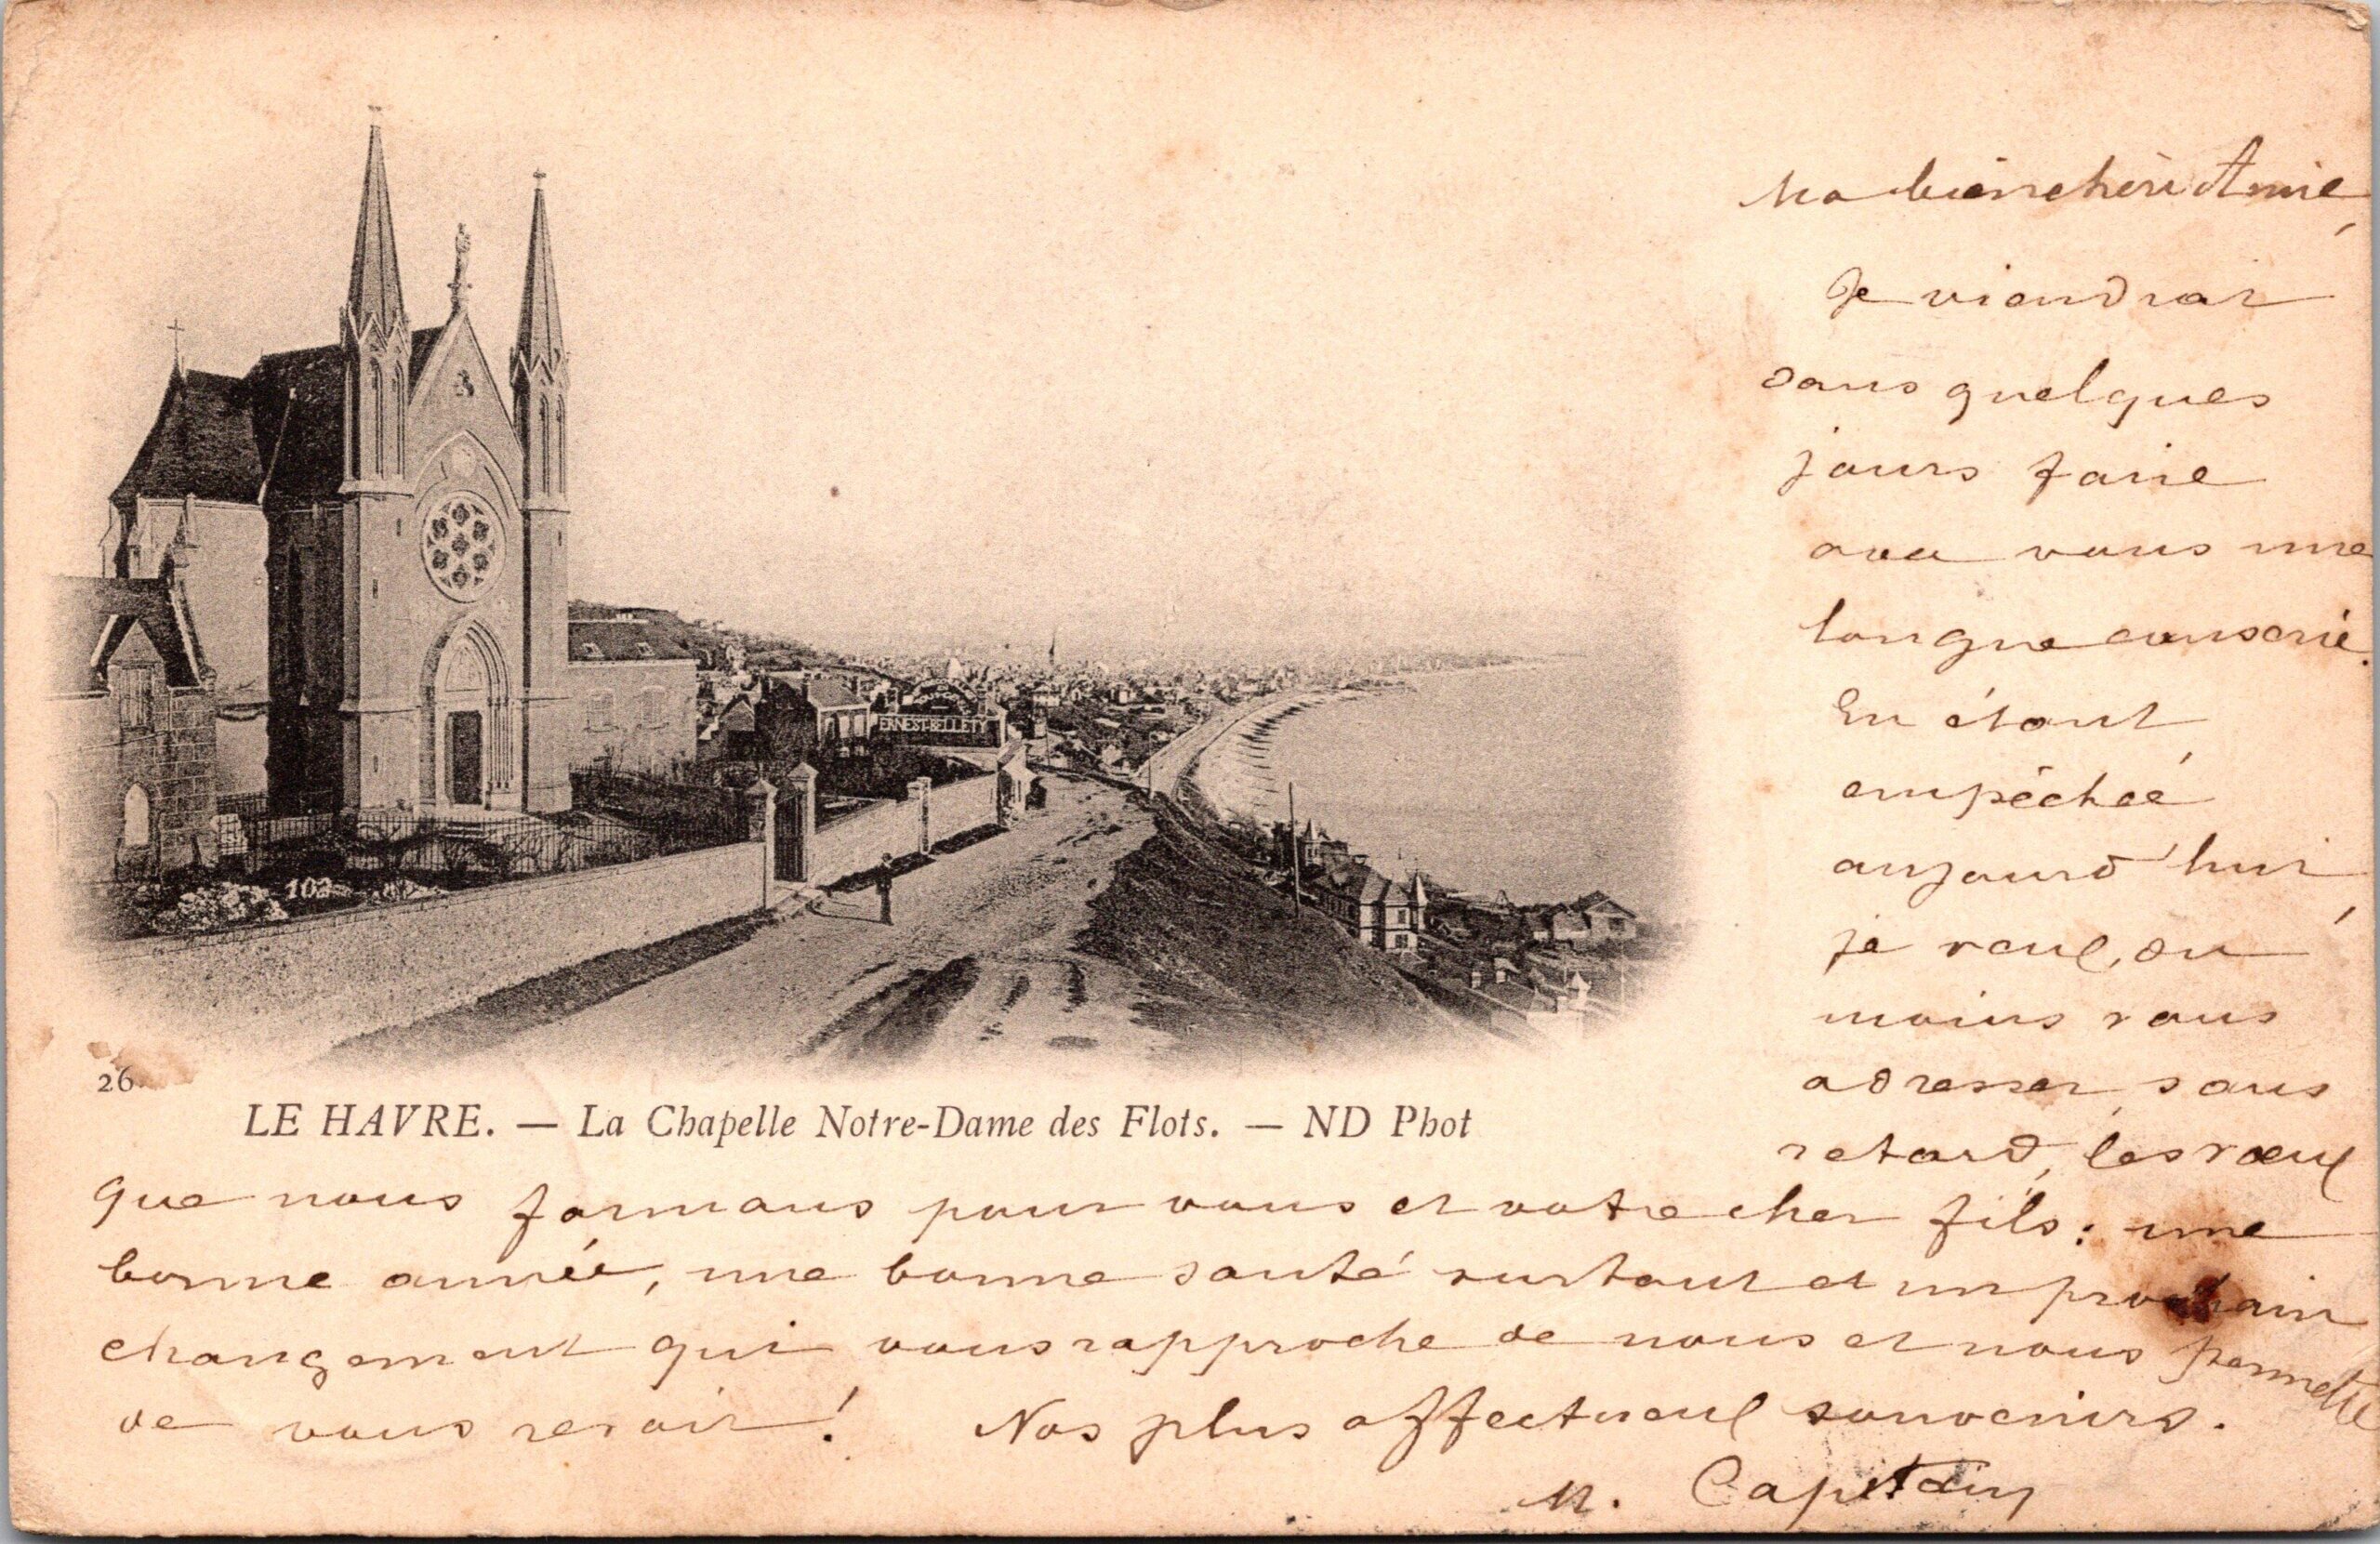 Ma bien chère Amie,
Je viendrai
dans quelques
jours faire
avec vous une
longue causerie.
En étant
empêchée
aujourd'hui,
je veux, du
moins vous
adresser sans
retard, les vœux
que nous formons pour vous et votre cher fils : une
bonne année, une bonne santé surtout et un prochain
changement qui vous rapproche de nous et nous permette
de vous revoir ! Nos plus affectueux souvenirs.
M. Capitain
ERNEST-BELLETY
102
26
LE HAVRE. — La Chapelle Notre-Dame des Flots. — ND Phot